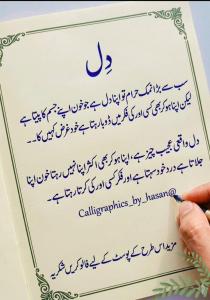 دِل
سب سے بڑا نمک حرام تو اپنا دل ہے جو خون اپنے جسم کا پیتا ہے
لیکن اپنا ہو کر بھی کسی اور کی فکر میں ڈوبا رہتا ہے خود غرض کہیں کا۔۔
دل واقعی عجیب چیز ہے، اپنا ہو کر بھی اکثر اپنا نہیں رہتا خون اپنا
جلاتا ہے درد خود سہتا ہے اور فکر کسی اور کی کرتا رہتا ہے۔
Calligraphics_by_hasan@
مزید اس طرح کے پوسٹ کے لیے فالو کریں شکریہ